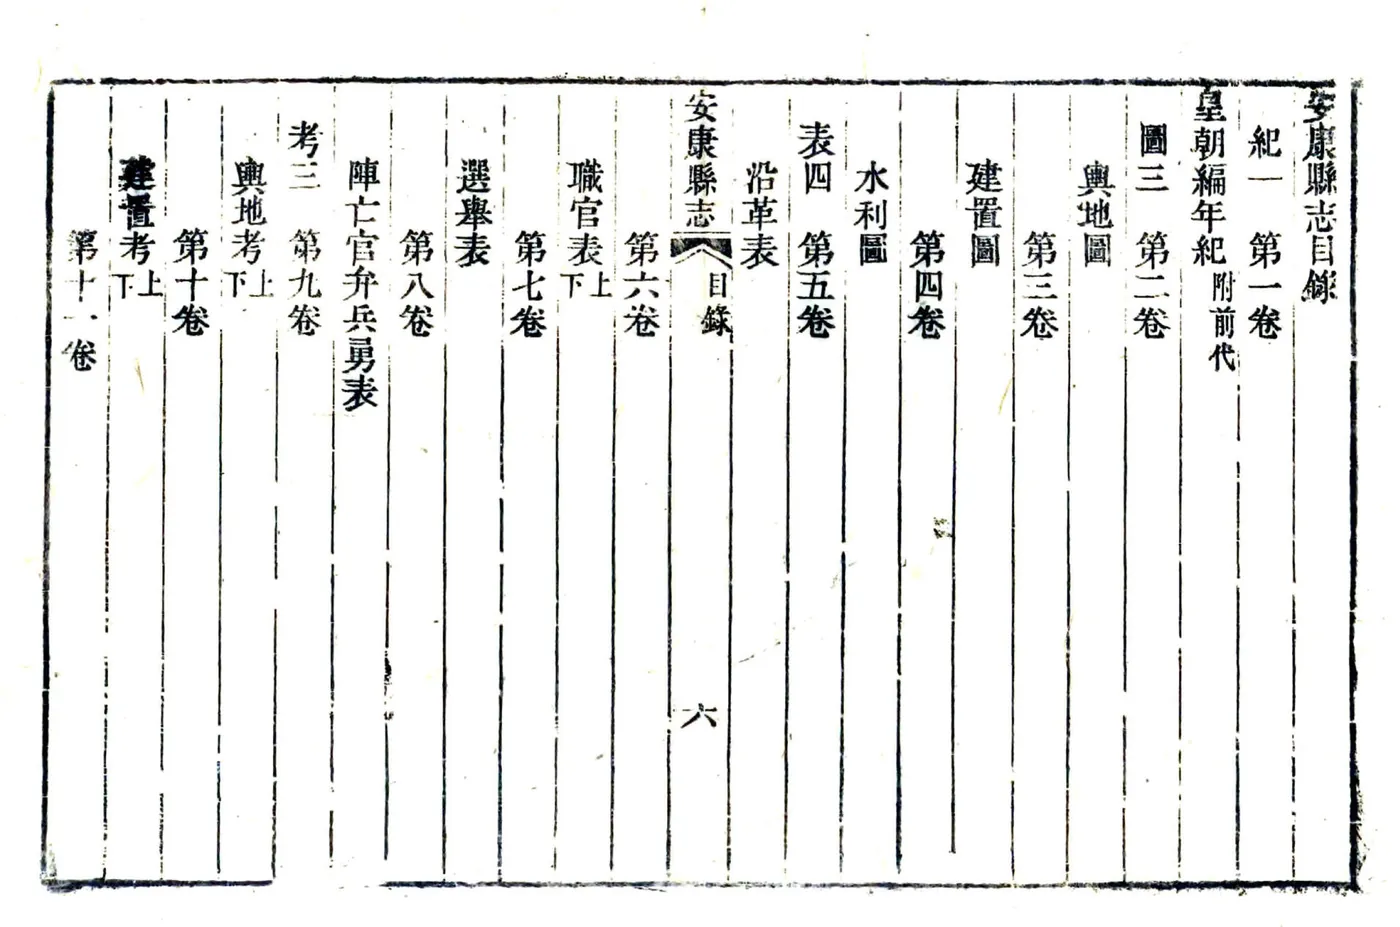 安康縣志目錄
紀一　第一卷
皇朝編年紀附前代
圖三　第二卷
輿地圖
第三卷
建置圖
第四卷
水利圖
表四　第五卷
沿革表
安康縣志　目錄　六
第六卷
職官表上下
第七卷
選舉表
第八卷
陣亡官弁兵勇表
考三　第九卷
輿地考上下
第十卷
建置考上下
第十一卷